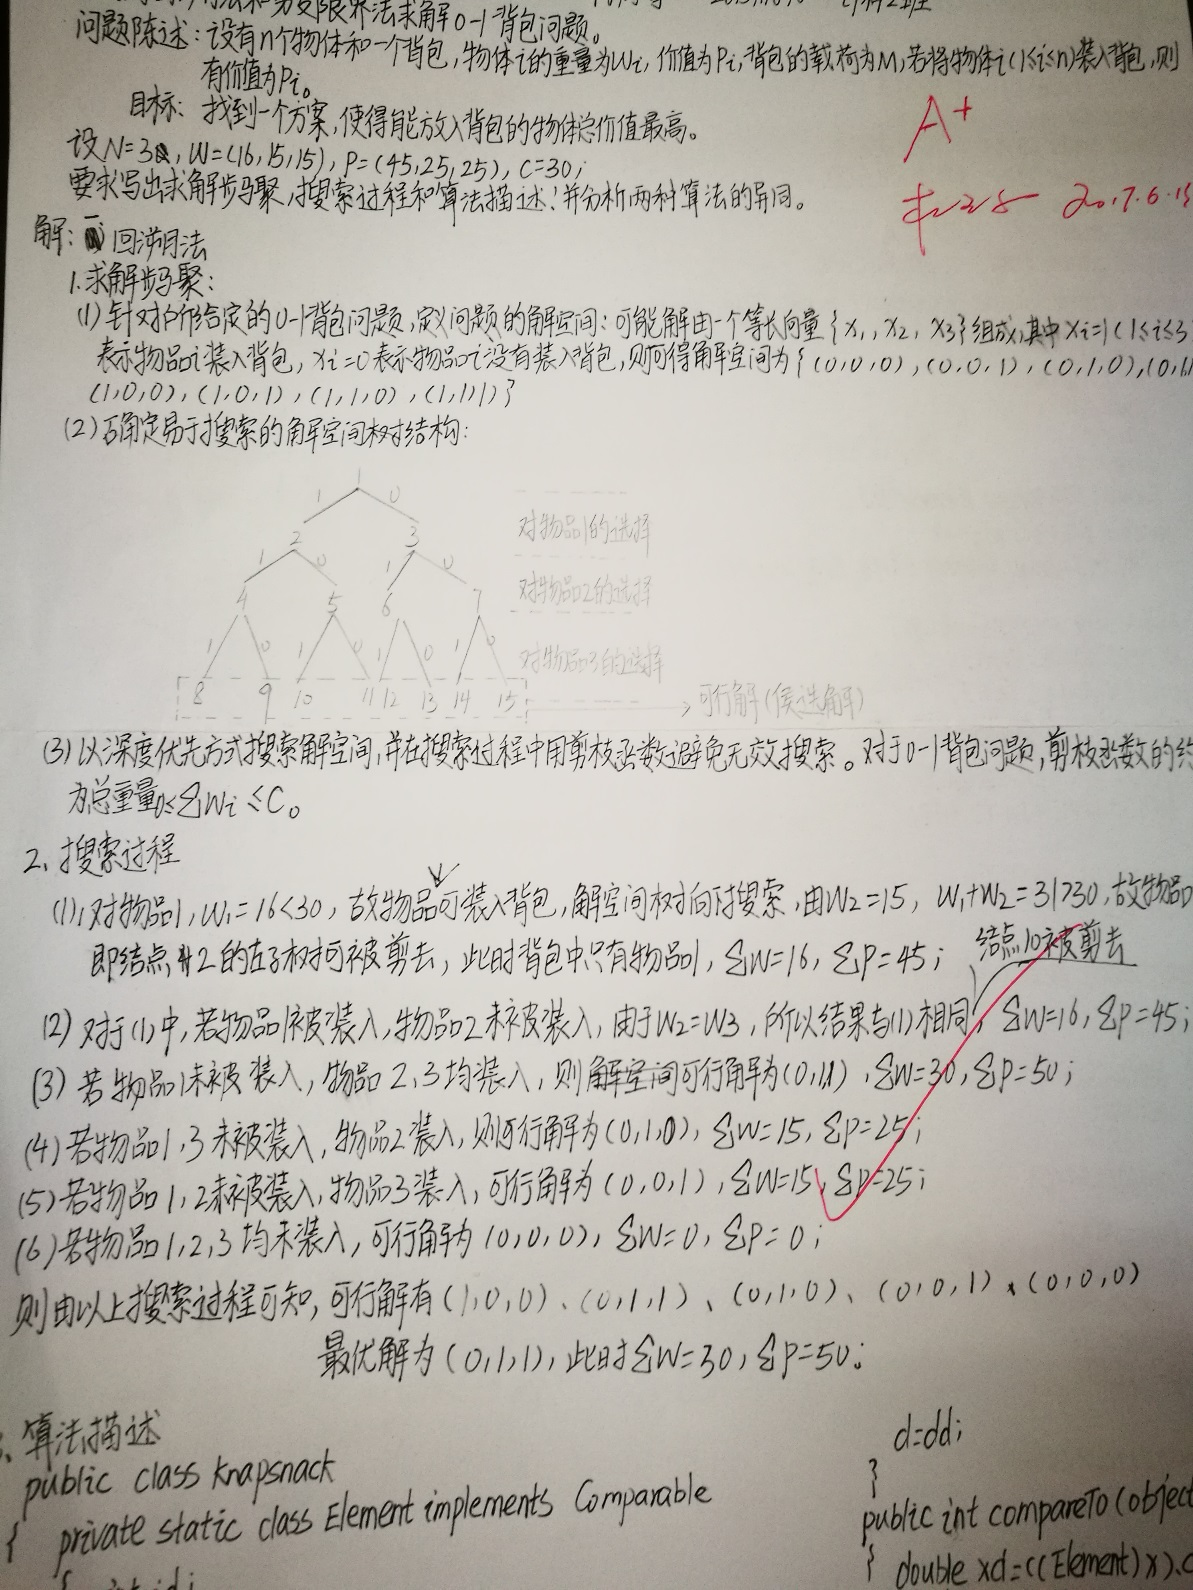 法和分支限界法求解0-1背包问题。
问题陈述：设有n个物体和一个背包，物体i的重量为wi，价值为pi，背包的载荷为M，若将物体i(1≤i≤n)装入背包，则
有价值为pi。
目标：找到一个方案，使得能放入背包的物体总价值最高。
设N=3，W=(16,15,15)，P=(45,25,25)，C=30；
要求写出求解步骤，搜索过程和算法描述！并分析两种算法的异同。
A+
2017.6.15
解：一 回溯法
1.求解步骤：
(1)针对所给定的0-1背包问题，定义问题的解空间：可能解由一个等长向量{x1, x2, x3}组成，其中xi=1(1≤i≤3
表示物品i装入背包，xi=0表示物品i没有装入背包，则可得解空间为{(0,0,0),(0,0,1),(0,1,0),(0,1,1
(1,0,0),(1,0,1),(1,1,0),(1,1,1)}
(2)确定易于搜索的解空间树结构：
1
1 0
2 3 对物品1的选择
1 0 1 0
4 5 6 7 对物品2的选择
1 0 1 0 1 0 1 0 对物品3的选择
8 9 10 11 12 13 14 15 可行解(候选解)
(3)以深度优先方式搜索解空间，并在搜索过程中用剪枝函数避免无效搜索。对于0-1背包问题，剪枝函数的约
为总重量0≤∑Wi≤C。
2、搜索过程
(1)对物品1，W1=16<30，故物品可装入背包，解空间树向下搜索，由W2=15，W1+W2=31>30，故物品
即结点2的左子树可被剪去，此时背包中只有物品1，∑W=16，∑P=45；
结点10被剪去
(2)对于(1)中，若物品1被装入，物品2未被装入，由于W2=W3，所以结果与(1)相同，∑W=16，∑P=45；
(3)若物品1未被装入，物品2,3均装入，则解空间可行解为(0,1,1)，∑W=30，∑P=50；
(4)若物品1,3未被装入，物品2装入，则可行解为(0,1,0)，∑W=15，∑P=25；
(5)若物品1,2未被装入，物品3装入，可行解为(0,0,1)，∑W=15，∑P=25；
(6)若物品1,2,3均未装入，可行解为(0,0,0)，∑W=0，∑P=0；
则由以上搜索过程可知，可行解有(1,0,0)、(0,1,1)、(0,1,0)、(0,0,1)、(0,0,0)
最优解为(0,1,1)，此时∑W=30，∑P=50。
、算法描述
public class Knapsnack
{ private static class Element implements Comparable
{ int id;
d=dd;
}
public int compareTo(object
{ double xd=((Element)x).